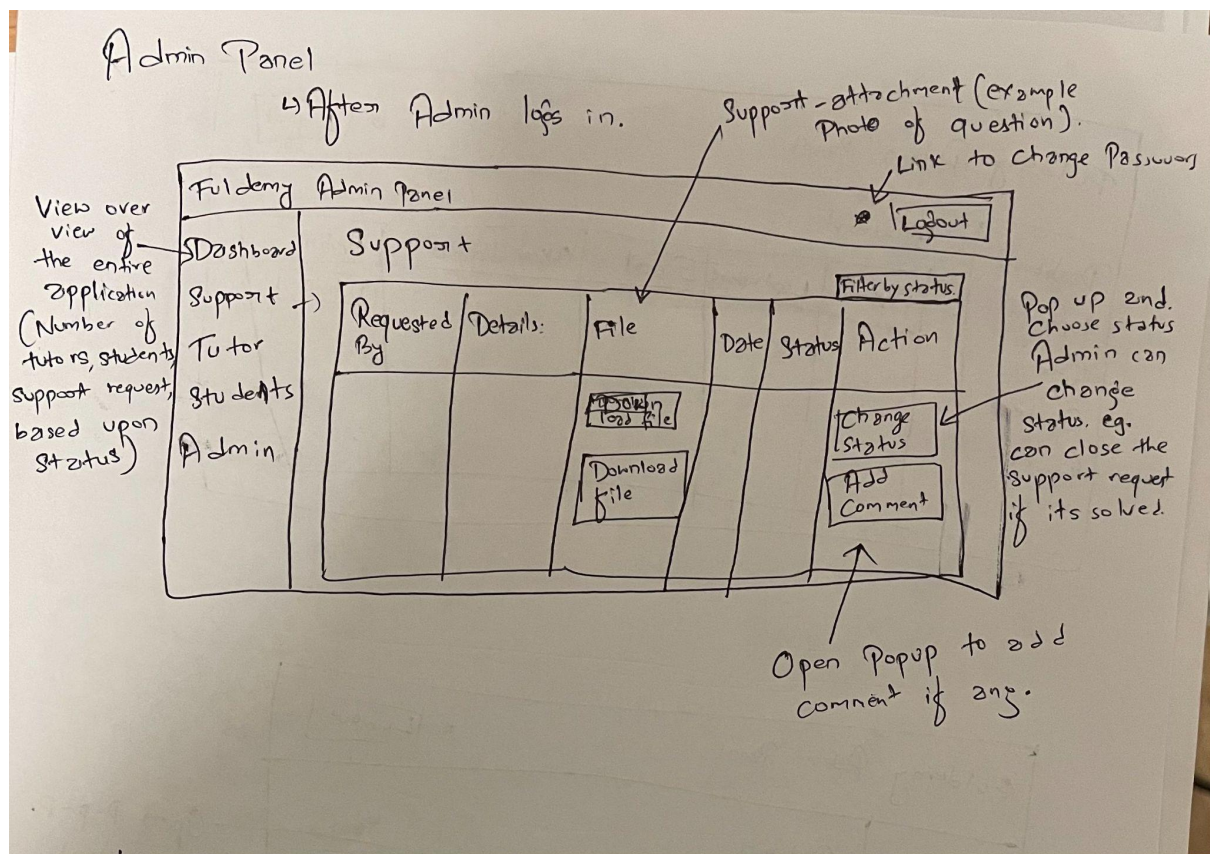 Admin Panel
↳ After Admin logs in.
Support - attachment (example
Photo of question).
Link to change Password
Fuldemy Admin Panel
Logout
View over
view of
the entire
application
(Number of
tutors, students,
support request,
based upon
status)
Dashboard
Support →
Tutor
Students
Admin
Support
Filter by status.
Requested
By
Details:
File
Date
Status
Action
Download
file
Change
Status
Add
Comment
Pop up and.
Choose status
Admin can
change
status. eg.
can close the
support request
if its solved.
Open Popup to add
comment if any.